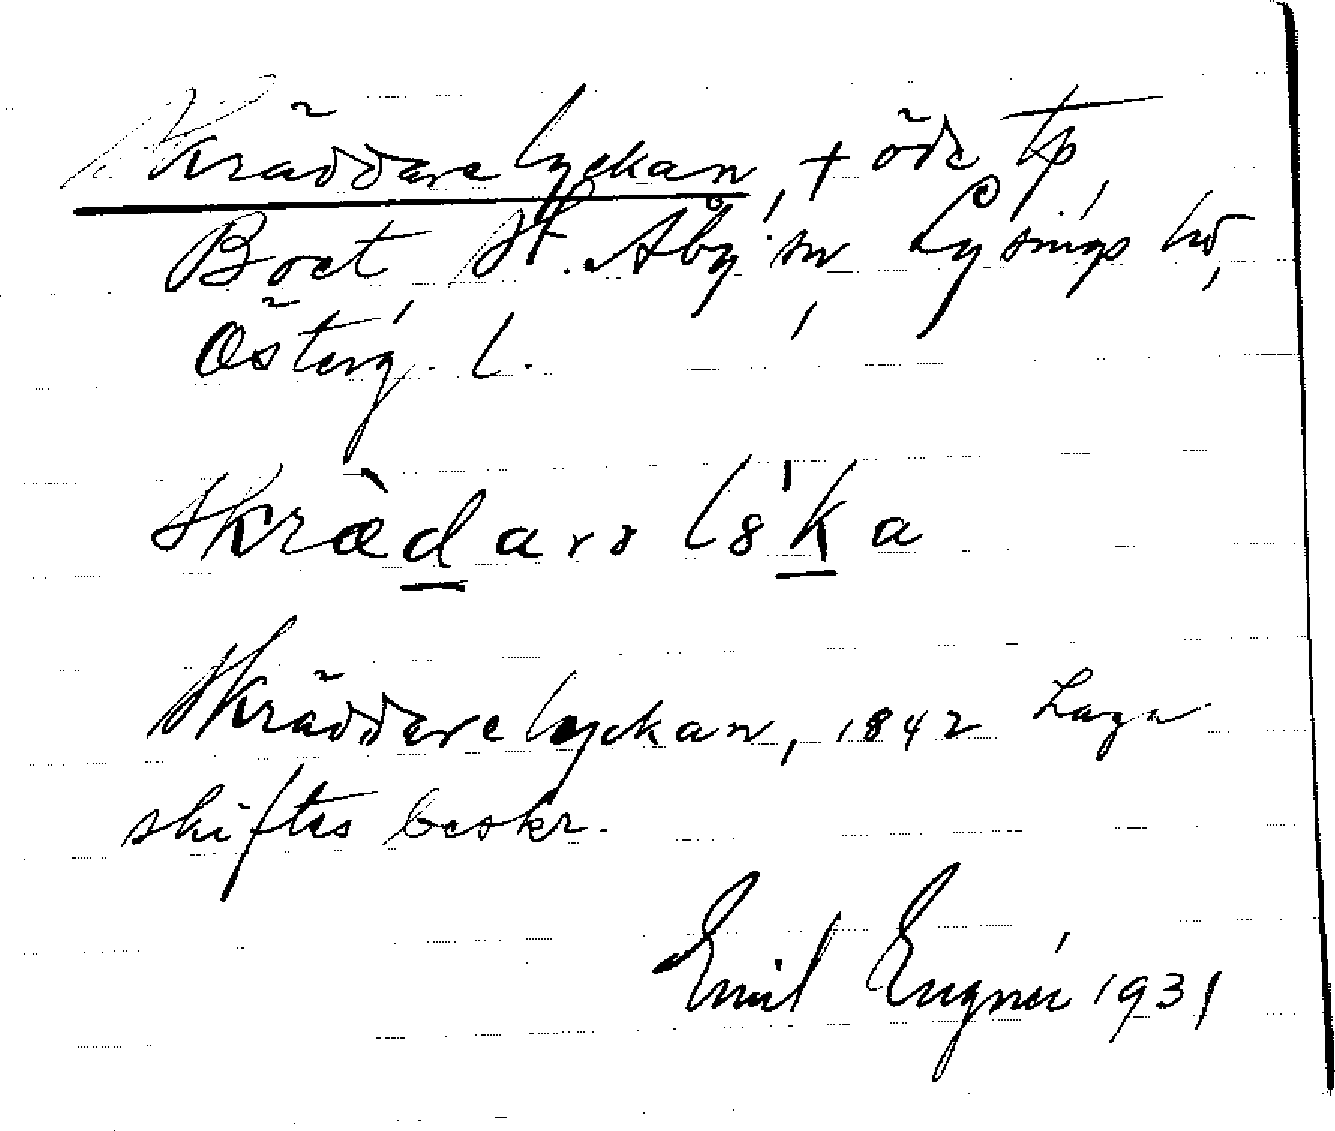 Skräddarelyckan, + öde tp
Boet St. Åby sn Lysings hd,
Österg. l.
skræ̀darə lə'ka
Skräddarelyckan, 1842 Laga
skiftes beskr.
Emil Engnér 1931